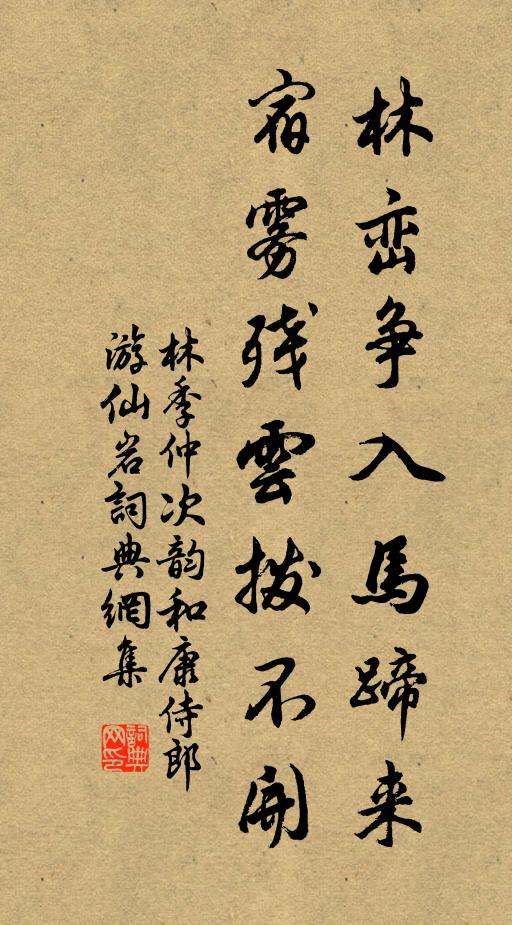 林峦争入馬蹄来
宿雾残雲拨不开
林季仲次韵和康侍郎
游仙岩詞典網集
詞典网印